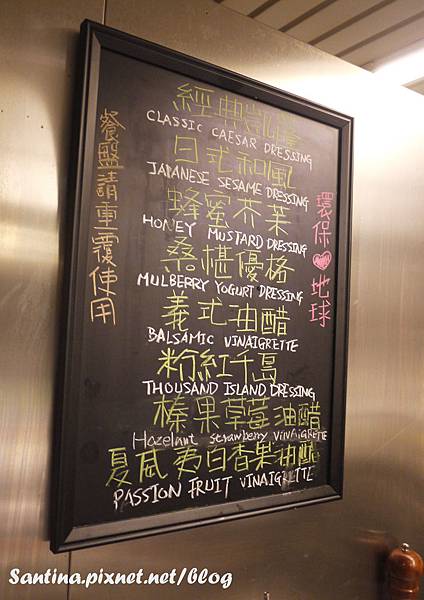 餐盤請重覆使用
經典凱薩
CLASSIC CAESAR DRESSING
日式和風
JAPANESE SESAME DRESSING
蜂蜜芥茉
HONEY MUSTARD DRESSING
桑椹優格
MULBERRY YOGURT DRESSING
義式油醋
BALSAMIC VINAIGRETTE
粉紅千島
THOUSAND ISLAND DRESSING
榛果草莓油醋
Hazelant strawberry VINAIGRETTE
夏威夷百香果油醋
PASSION FRUIT VINAIGRETTE
環保♥地球
Santina.pixnet.net/blog